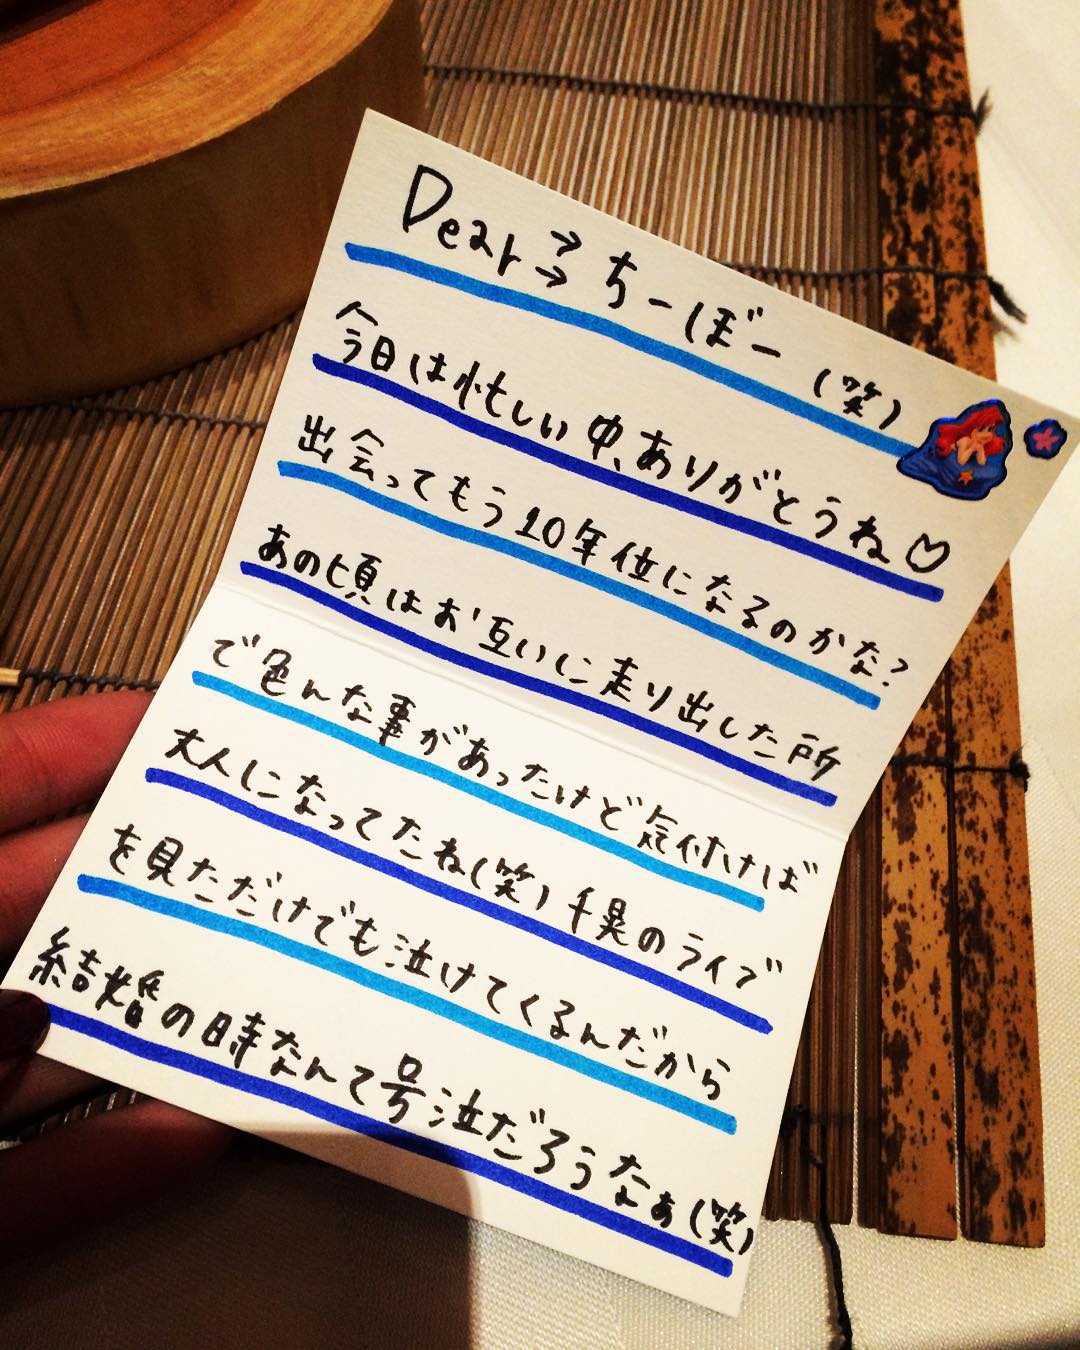 Dear→→ちーぼー(笑)
今日は忙しい中、ありがとうね♡
出会ってもう10年位になるのかな?
あの頃はお互いに走り出した所
で色んな事があったけど気付けば
大人になってたね(笑)千晃のライブ
を見ただけでも泣けてくるんだから
結婚の時なんて号泣だろうなぁ(笑)